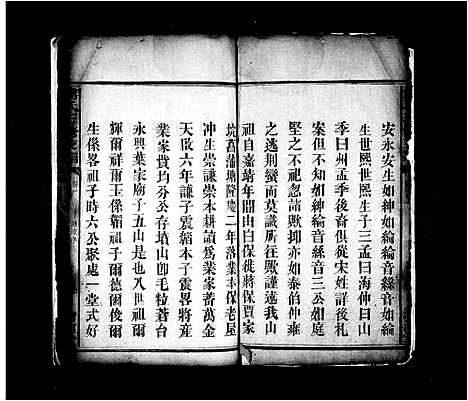 安永安生如紳如綸綸音綠音如綸
生世熙世熙生子三孟曰海仲曰山
季曰州孟季後裔俱從宋姓詳後札
案但不知如紳綸音綠音三公如庭
堅之不祀忽諸歟抑亦如泰伯仲雍
之逃荆蠻而莫識所往歟謹述我山
祖自嘉靖年間由白保徙將保賈家
坑菖蒲塘隆慶二年落業本保老屋
冲生崇謙崇本耕讀爲業家著萬金
天啟六年謙子震韜本子震畧將産
業家貲均分公存墳山卽毛粒蒼台
永興葉家廟子五山是也八世祖爾
輝爾祥爾玉係韜祖子爾德爾俊爾
生係畧祖子時六公聚處一堂式好